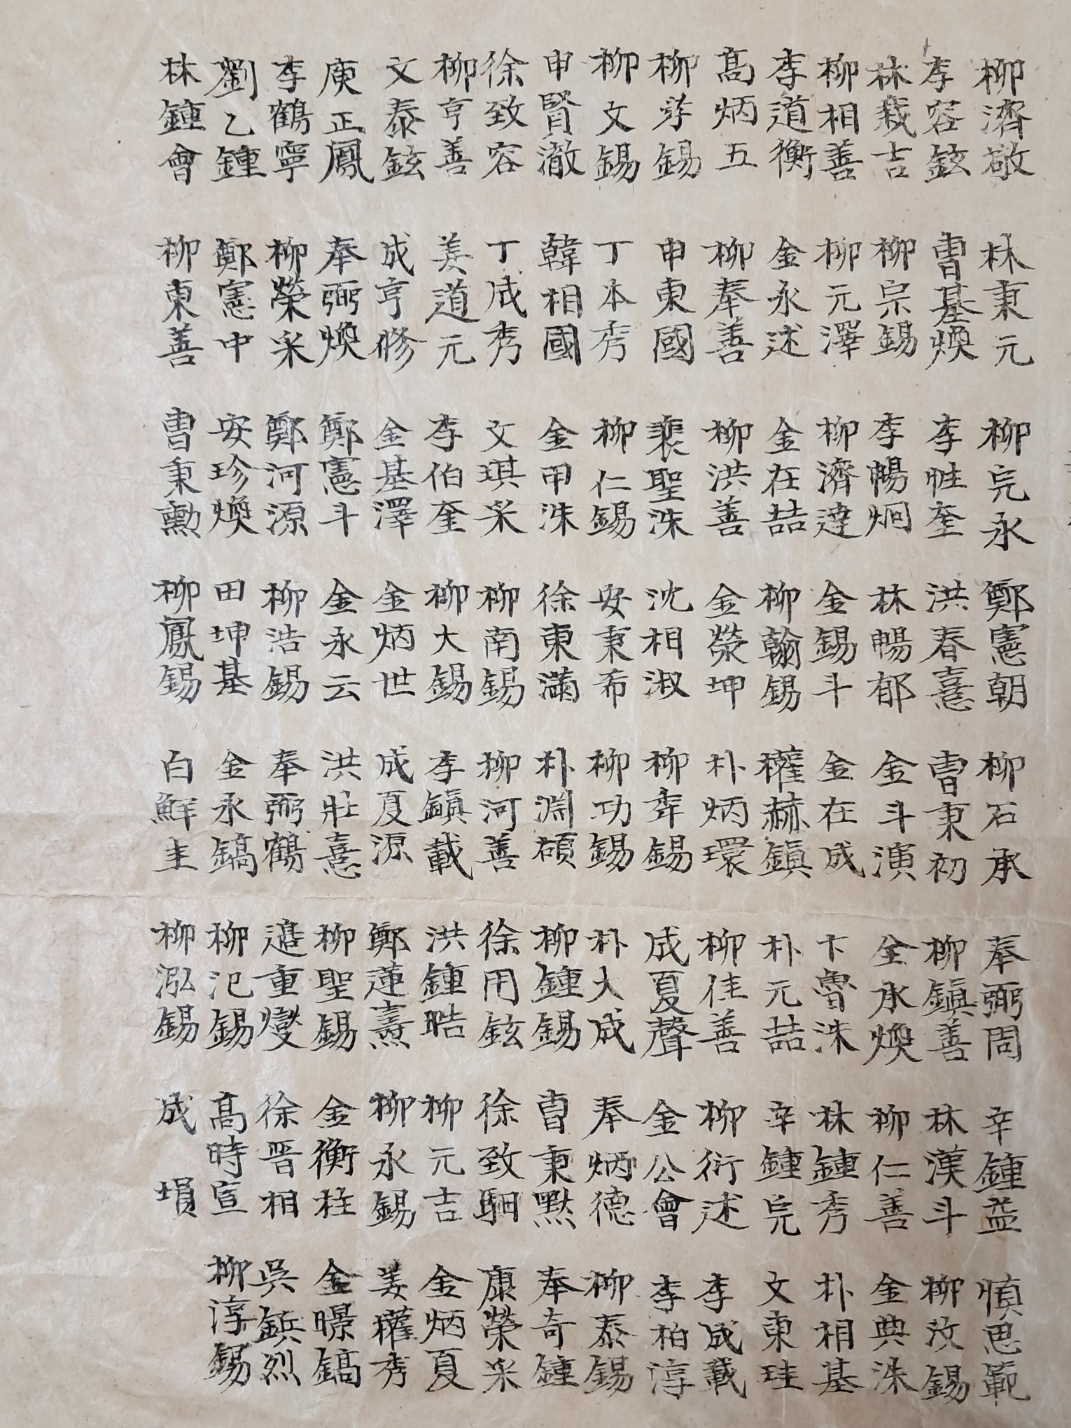 柳濟敬 林秉元 柳完永 鄭憲朝 柳石承 奉弼周 辛鍾益 愼思範
李容鉉 曺基煥 李胜奎 洪春憙 曺秉初 柳鎭善 林漢斗 柳汶錫
林栽吉 柳宗錫 李暢炯 林暢郁 金斗演 金永煥 柳仁善 金典洙
柳相善 柳元澤 柳濟達 金錫斗 金在成 卞魯洙 林鍾秀 朴相基
李道衡 金永述 金在喆 柳翰錫 權赫鎭 朴元喆 辛鍾完 文東珪
高炳五 柳奉善 柳洪善 金滎坤 朴炳環 柳佳善 柳衍述 李成載
柳 錫 申東國 裵聖洙 沈相淑 柳 錫 成夏聲 金公會 李柏淳
柳文錫 丁本秀 柳仁錫 安秉希 柳功錫 朴大成 奉炳德 柳泰錫
申賢澈 韓相國 金甲洙 徐東滿 朴淵碩 柳鍾錫 曺秉默 奉奇鍾
徐致容 丁成秀 文琪采 柳南錫 柳河善 徐用鉉 徐致駰 康榮采
柳亨善 姜道元 李伯奎 柳大錫 李鎭載 洪鍾晧 柳元吉 金炳夏
文泰鉉 成亨修 金基澤 金炳世 成夏源 鄭蓮熹 柳永錫 姜權秀
庾正鳳 奉弼煥 鄭憲斗 金永云 洪壯憙 柳聖錫 金衡柱 金暻鎬
李鶴寧 柳榮采 鄭河源 柳浩錫 奉弼鶴 邉重燮 徐晋相 吳鎮烈
劉乙鍾 鄭憲中 安珍煥 田坤基 金永鎬 柳汜錫 高時宣 柳淳錫
林鍾會 柳東善 曺秉勳 柳鳳錫 白鮮圭 柳泓錫 成塤